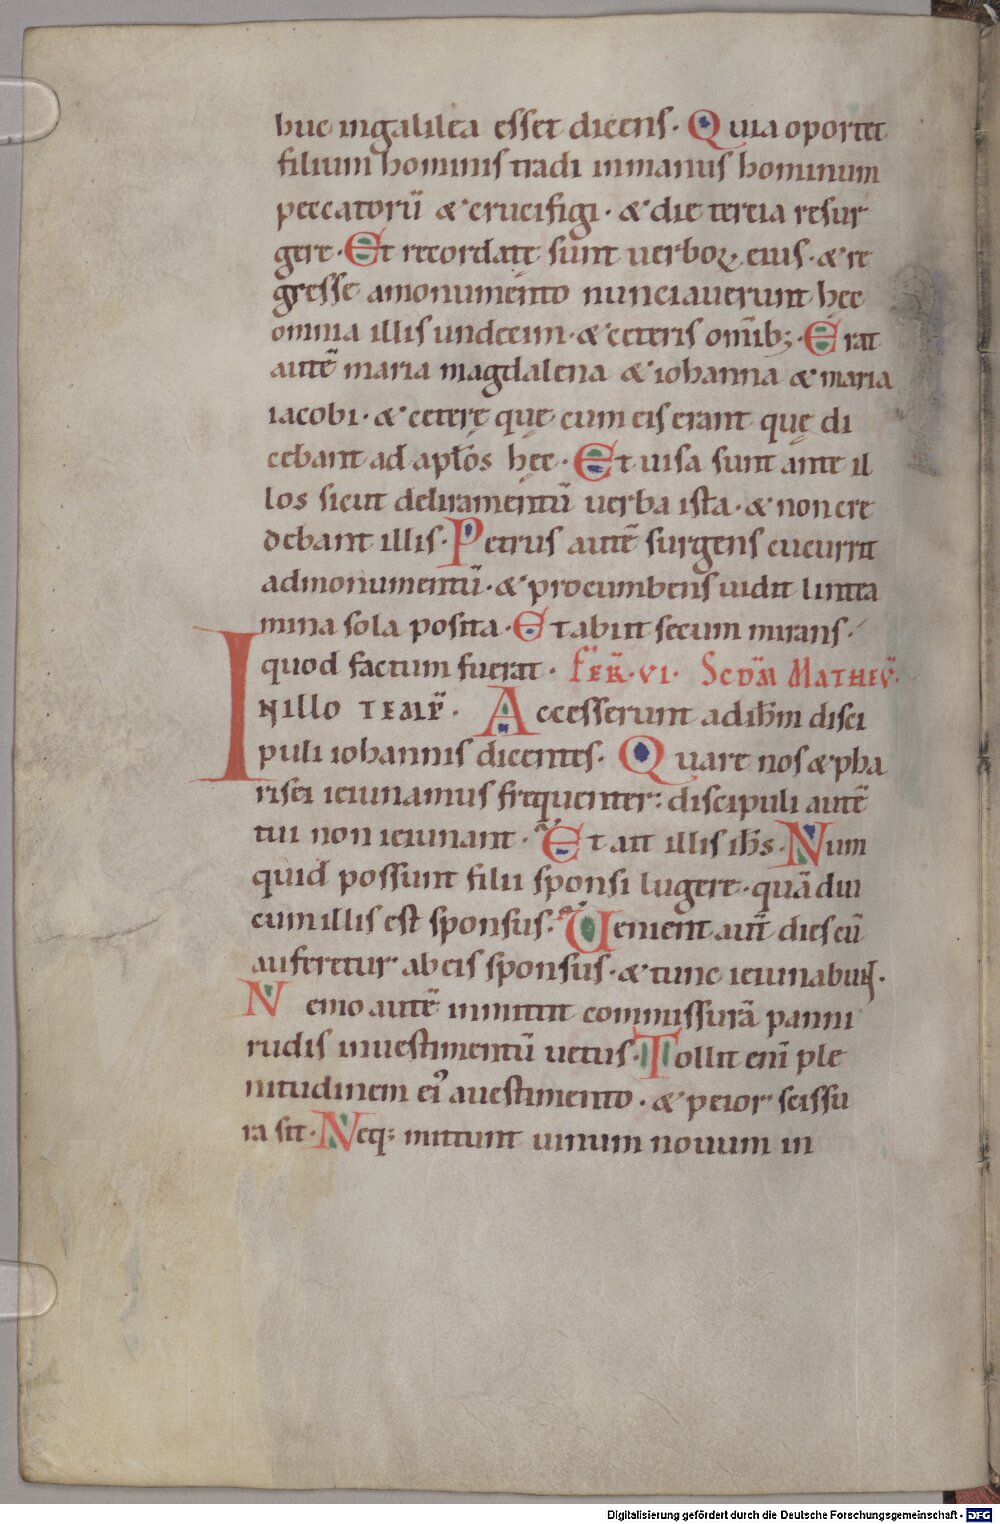 huc ingalilea esset dicens. Quia oportet
filium hominis tradi inmanus hominum
peccatorū & crucifigi. & die tercia resur
gere. Et recordatę sunt uerboꝝ eius. & re
gressę amonumento nunciauerunt hęc
omnia illis undecim. & ceteris omīb;. Erat
autē maria magdalena & iohanna & maria
iacobi. & ceterę quę cum eis erant quę di
cebant ad apłos hęc. Et uisa sunt ante il
los sicut deliramentū uerba ista. & non cre
debant illis. Petrus autē surgens cucurrit
admonumentū. & procumbens uidit lintea
mina sola posita. Et abiit secum mirans.
quod factum fuerat. FER̄. VI. SCDM̄ MATHEV̄.
INILLO TEMP̄. Accesserunt ad ih̄m disci
puli iohannis dicentes. Quare nos & pha
risei ieiunamus frequenter: discipuli autē
tui non ieiunant. Et ait illis ih̄s. Num
quid possunt filii sponsi lugere. quādiu
cum illis est sponsus. Uenient aut̄ dies cū
auferetur ab eis sponsus. & tunc ieiunabunt.
Nemo autē inmittit commissurā panni
rudis inuestimentū uetus. Tollit enī ple
nitudinem ei᾽ auestimento. & peior scissu
ra fit. Neq; mittunt uinum nouum in
Digitalisierung gefördert durch die Deutsche Forschungsgemeinschaft - DFG